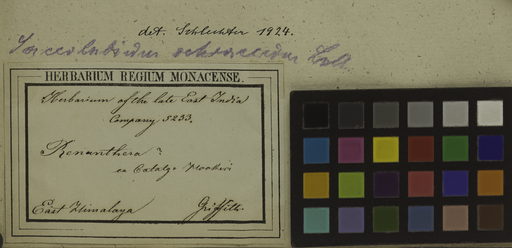 det. Schlechter 1924.
Saccolabium ochraceum Lindl.
HERBARIUM REGIUM MONACENSE.
Herbarium of the late East India
Company 5233.
Renanthera ?
ex Catalg. Hookeri
East Himalaya Griffith.